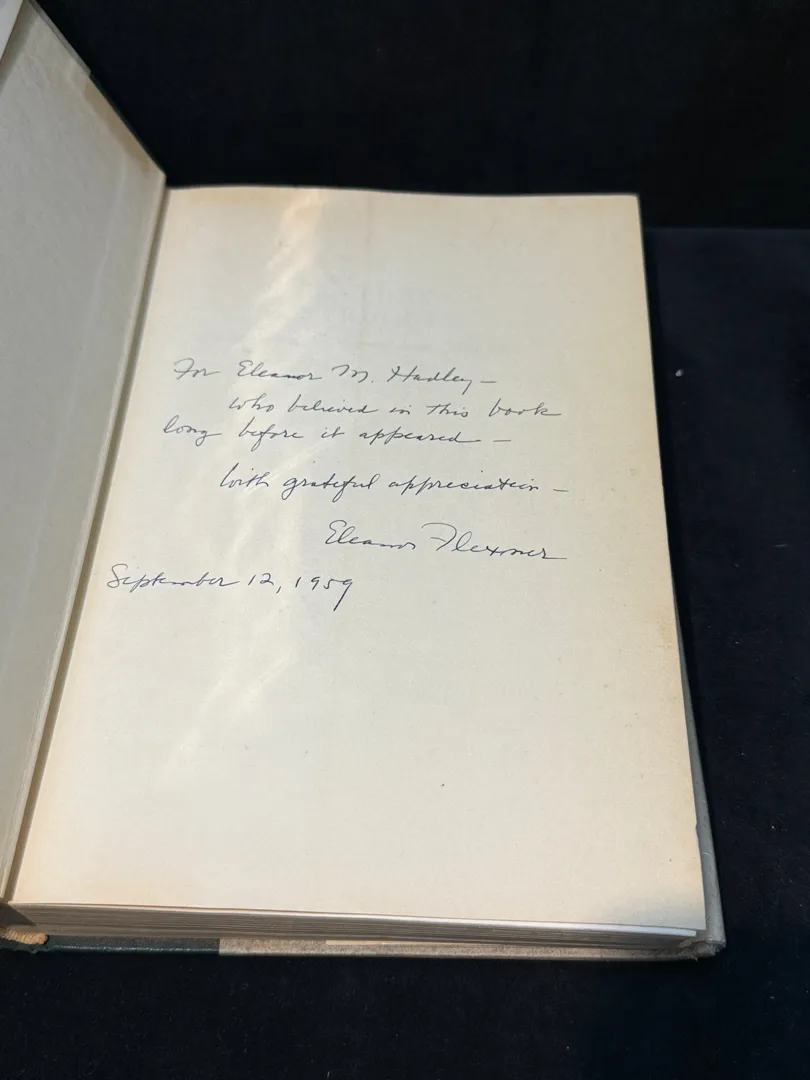 For Eleanor M. Hadley –
who believed in this book
long before it appeared –
With grateful appreciation –
Eleanor Flexner
September 12, 1959